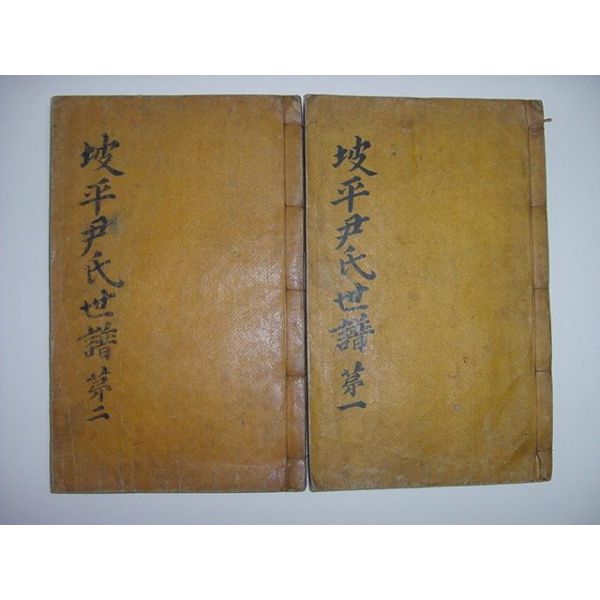 坡平尹氏世譜 苐一
坡平尹氏世譜 苐二